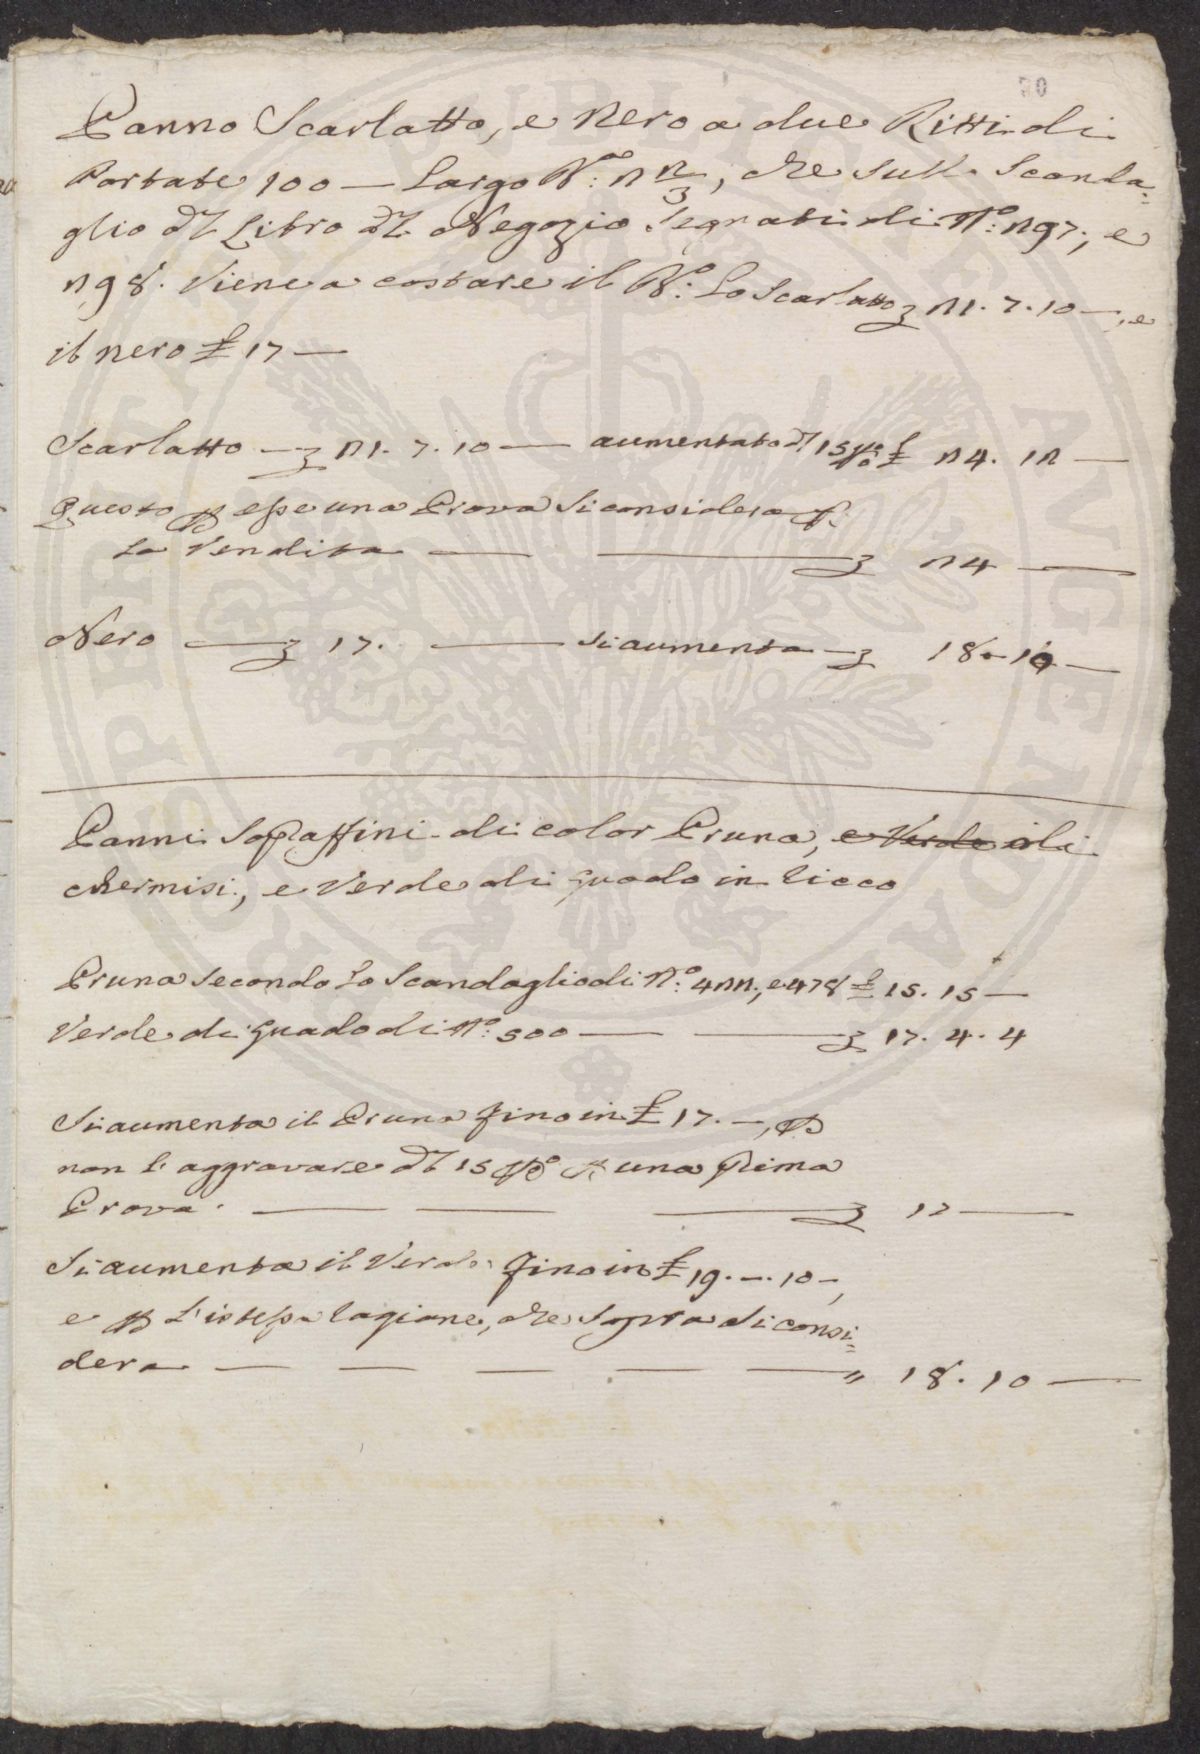 70
Panno Scarlatto, e Nero a due Ritti di
Portate 100 — Largo B.º: 2 2/3, che sullo Scanda=
glio dl Libro dl Negozio segnati di Nº: 297, e
298. viene a costare il B.º: Lo Scarlatto £ 21. 7. 10 —, e
il nero £ 17 —
Scarlatto — £ 21. 7. 10 — aumentato dl 15 p% £ 24. 12 —
Questo p esse una Prova si considera p
La Vendita — — £ 24 —
Nero — £ 17. — si aumenta — £ 18. 10 —
Panni Sopraffini di color Pruna, e Verde di
chermisi, e Verde di Guado in
Pruna secondo Lo Scandaglio di Nº: 422, e 478 £ 15. 15 —
Verde di Guado di Nº: 500 — — £ 17. 4. 4
Si aumenta il Pruna fino in £ 17. —, p
non l'aggravare dl 15 p% p una prima
Prova. — — — £ 17 —
Si aumenta il Verde fino in £ 19. —. 10 —,
e p l'istessa ragione, che sopra si consi=
dera — — — — — " 18. 10 —